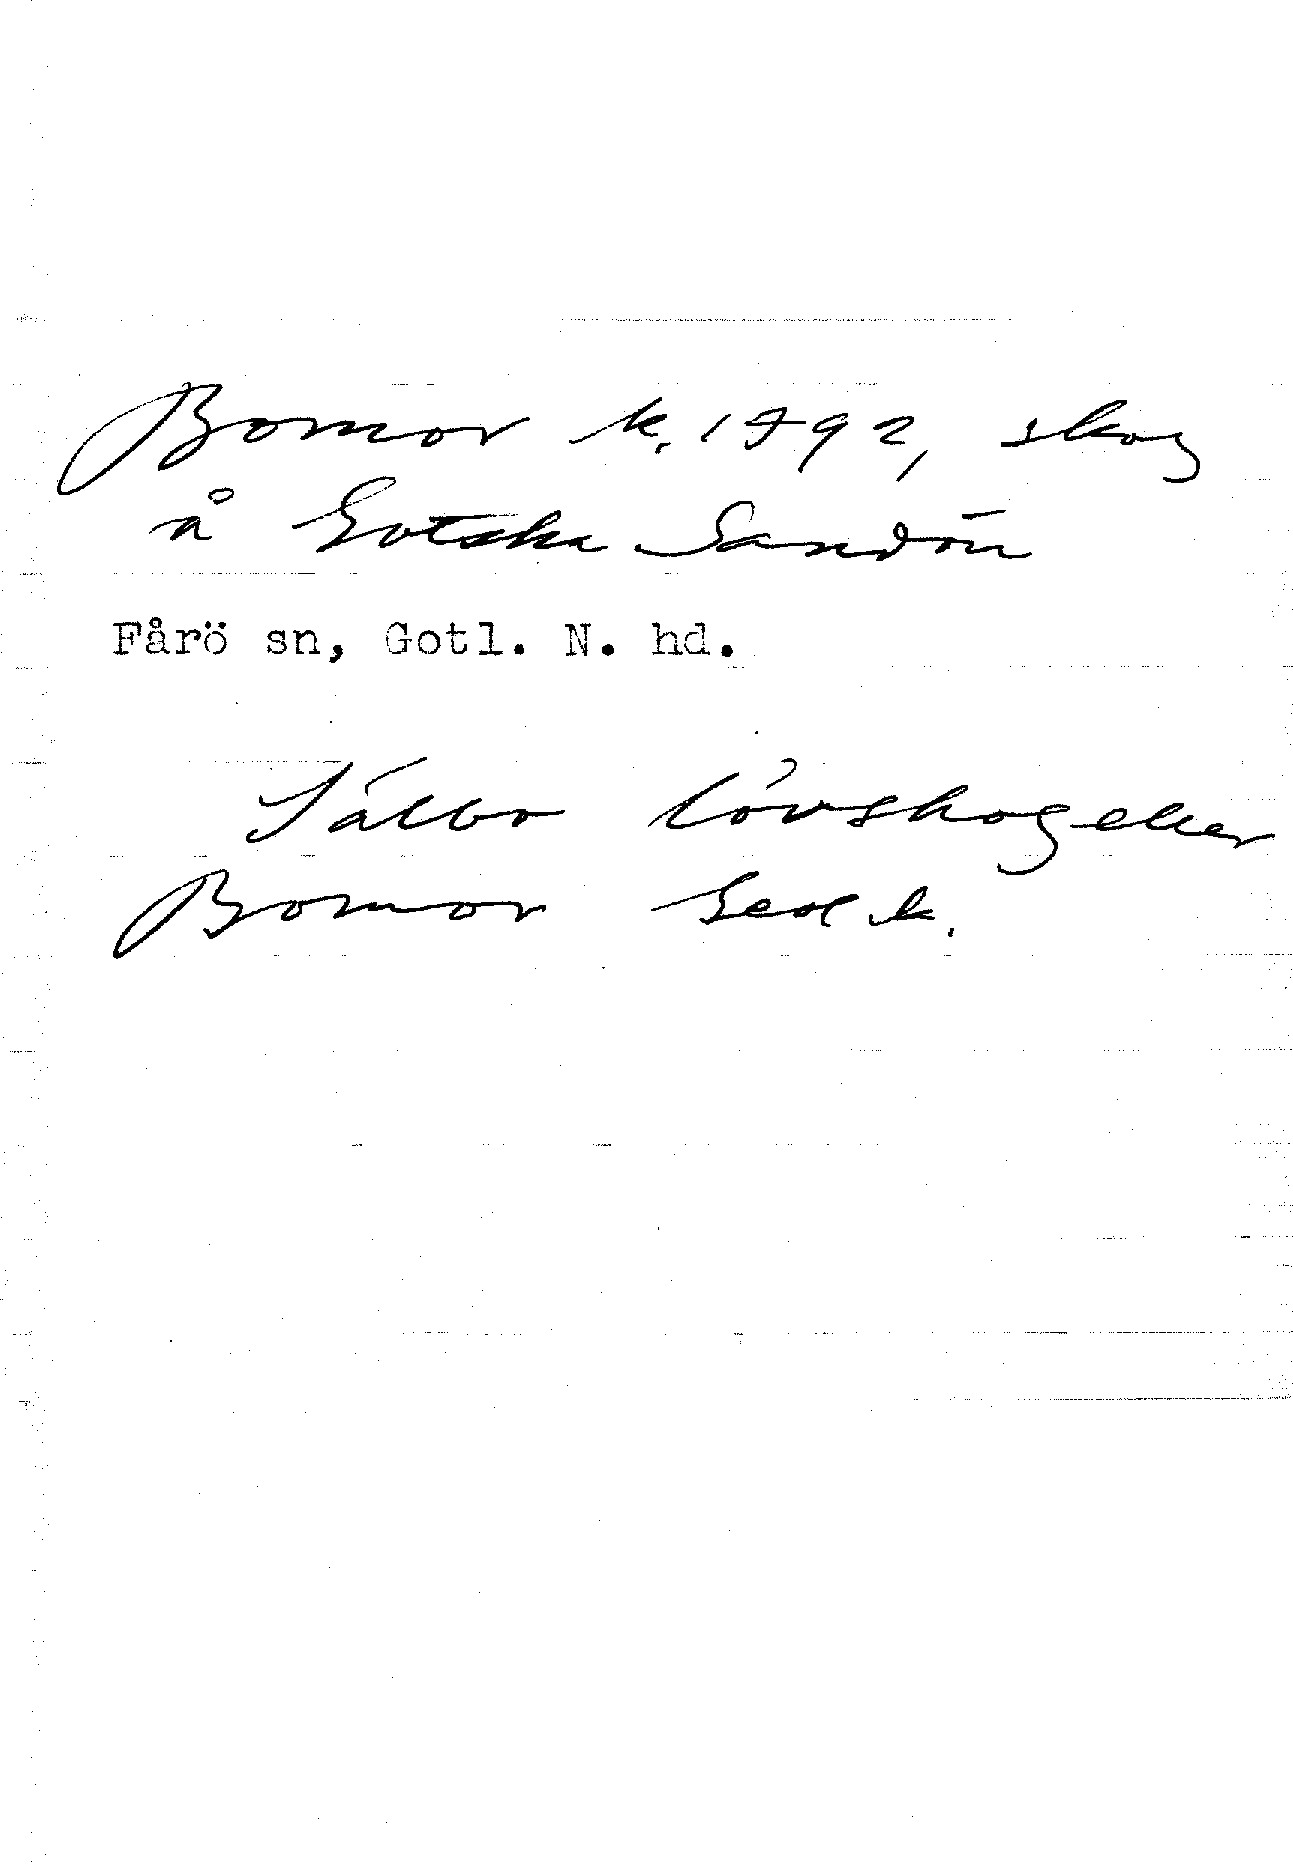 Bomor k. 1892, skog
å Gotska Sandön
Fårö sn, Gotl. N. hd.
Sälbo lövskog eller
Bomor Geol k.